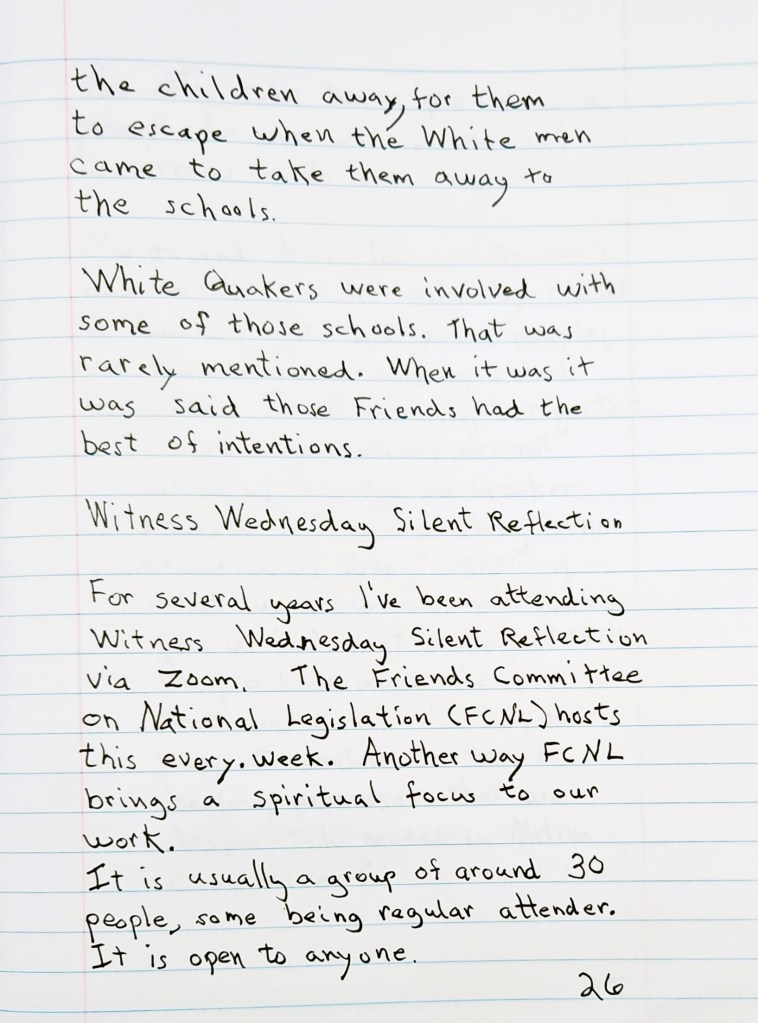 the children away, for them
to escape when the White men
came to take them away to
the schools.
White Quakers were involved with
some of those schools. That was
rarely mentioned. When it was it
was said those Friends had the
best of intentions.
Witness Wednesday Silent Reflection
For several years I've been attending
Witness Wednesday Silent Reflection
via Zoom. The Friends Committee
on National Legislation (FCNL) hosts
this every. week. Another way FCNL
brings a spiritual focus to our
work.
It is usually a group of around 30
people, some being regular attender.
It is open to anyone.
26